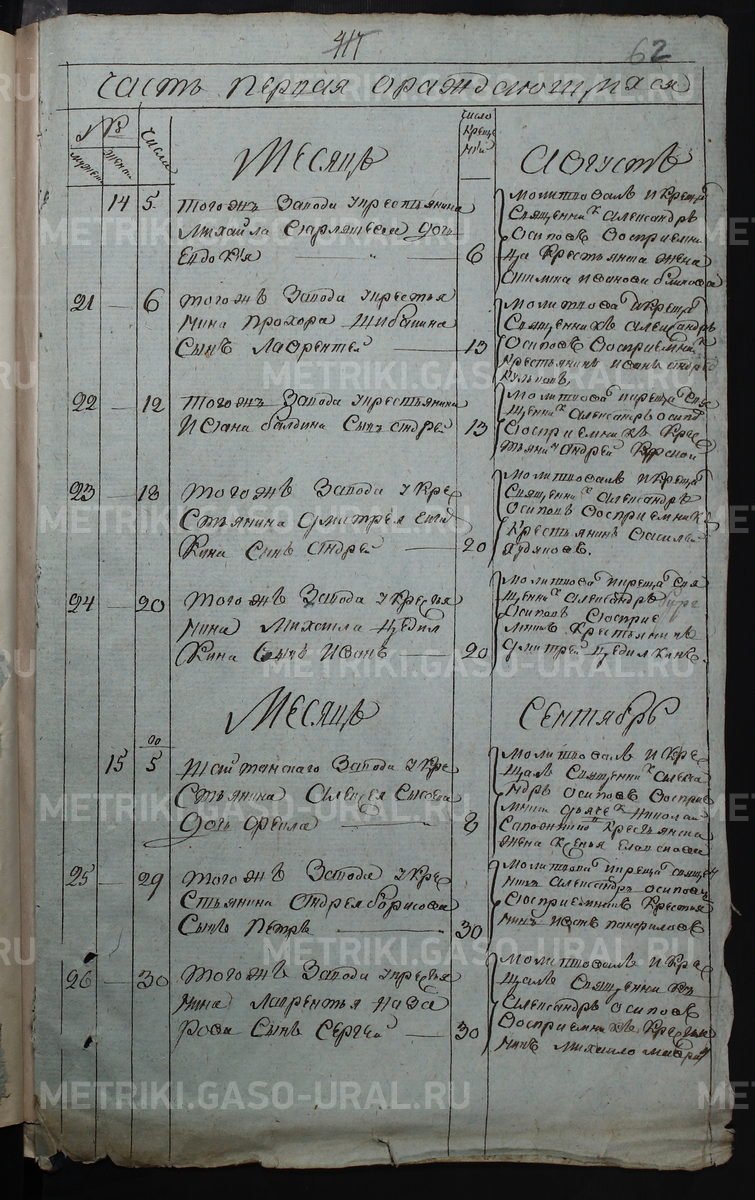 62
Часть первая ораждающихся
№
мужеск
женск
числа
число
крещения
Месяцъ
Августъ
14
5
тогожъ Завода укрестьянина
Михайла дочь
Евдокiя
6
молитвовалъ и крещ
Священникъ Александръ
Осиповъ восприемни
ца крестьянина жена
21
6
тогожъ Завода укрестья
нина Прохора Шибанина
Сынъ Лаврентей
13
молитвова и креща
Священникъ Александръ
Осиповъ восприемникъ
крестьянинъ
22
12
тогожъ Завода укрестьянина
Ивана балдина Сынъ Андрей
13
молитвова икреща Свя
щенникъ Александръ Осипо
восприемникъ крес
тьянинъ Андрей
23
18
тогожъ Завода укре
стьянина Дмитрея
кина Сынъ Андрей
20
молитвовалъ и креща
Священникъ Александръ
Осиповъ восприемникъ
крестьянинъ Василей
Худяковъ.
24
20
тогожъ Завода укрестья
нина Михаила Цедил
кина Сынъ Иванъ
20
молитвова икреща Свя
щенникъ Александръ
Осиповъ восприе
мникъ крестьянинъ
Дмитрей Цедилкинъ.
Месяцъ
Сентябрь
15
5
Шайтанскаго Завода укре
стьянина Алексея Сысоева
дочь Фекла
8
молитвовалъ и кре
щалъ Священникъ Алекса
ндръ Осиповъ восприе
мник дьячекъ Николай
Сапожников крестьянска
жена Ксенья
25
29
тогожъ Завода укре
стьянина Андрея борисова
Сынъ Петръ
30
молитвова икреща свяще
никъ Александръ Осиповъ
восприемникъ крестья
нинъ Иванъ панфиловъ
26
30
тогожъ Завода укрестья
нина Лаврентья Наза
рова Сынъ Сергей
30
молитвовалъ и кре
щалъ Священникъ
Александръ Осиповъ
восприемникъ крестья
нинъ Михайло
METRIKI.GASO-URAL.RU